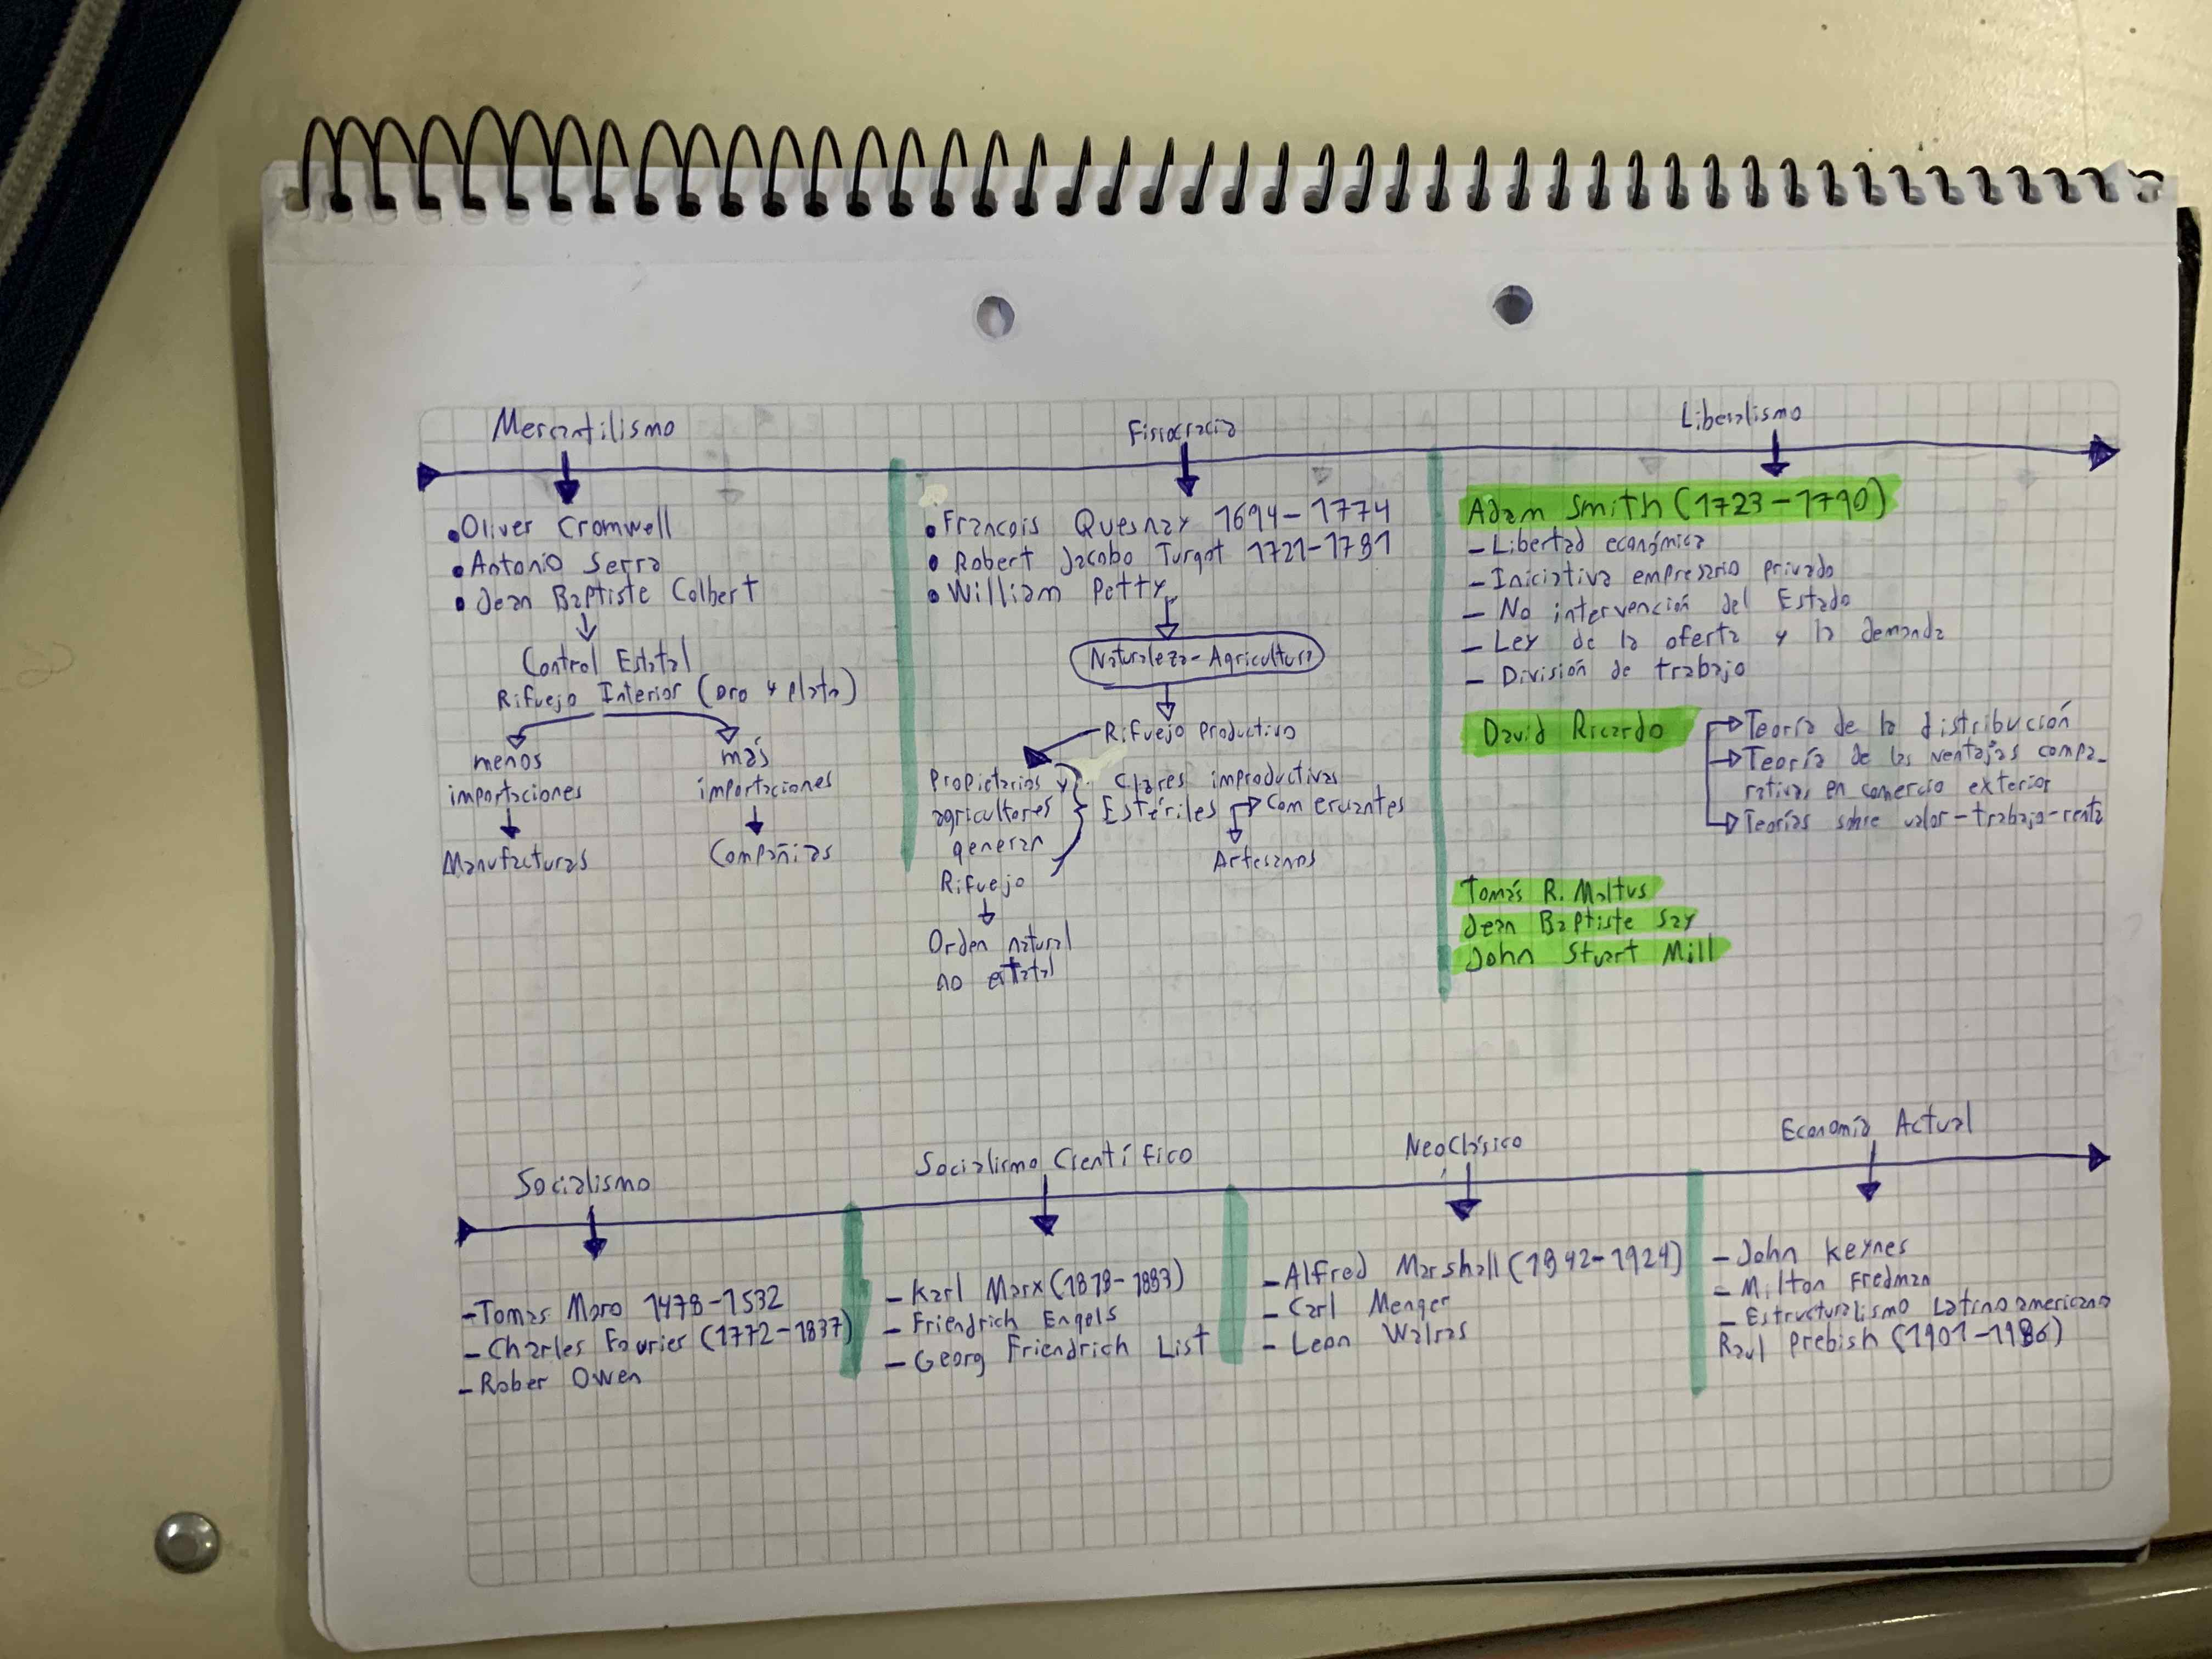 Mercantilismo
• Oliver Cromwell
• Antonio Serra
• Jean Baptiste Colbert
Control Estatal
Rifuejo Interior (oro y plata)
menos
importaciones
Manufacturas
más
importaciones
Compañias
Fisiocracia
• Francois Quesnay 1694-1774
• Robert Jacobo Turgot 1721-1781
• William Petty
Naturaleza-Agricultura
Rifuejo Productivo
Propietarios y
agricultores
generan
Rifuejo
Orden natural
no estatal
Clases improductivas
Estériles
Comerciantes
Artesanos
Liberalismo
Adam Smith (1723-1790)
- Libertad económica
- Iniciativa empresario privado
- No intervención del Estado
- Ley de la oferta y la demanda
- División de trabajo
David Ricardo
Teoría de la distribución
Teoría de las ventajas compa-
rativas en comercio exterior
Teorías sobre valor-trabajo-renta
Tomás R. Maltus
Jean Baptiste Say
John Stuart Mill
Socialismo
- Tomas Moro 1478-1532
- Charles Fouries (1772-1837)
- Rober Owen
Socialismo Científico
- Karl Marx (1818-1883)
- Friendrich Engels
- Georg Friendrich List
NeoClásico
- Alfred Marshall (1842-1924)
- Carl Menger
- Leon Walras
Economía Actual
- John Keynes
- Milton Fredman
- Estructuralismo Latinoamericano
Raul Prebish (1901-1986)